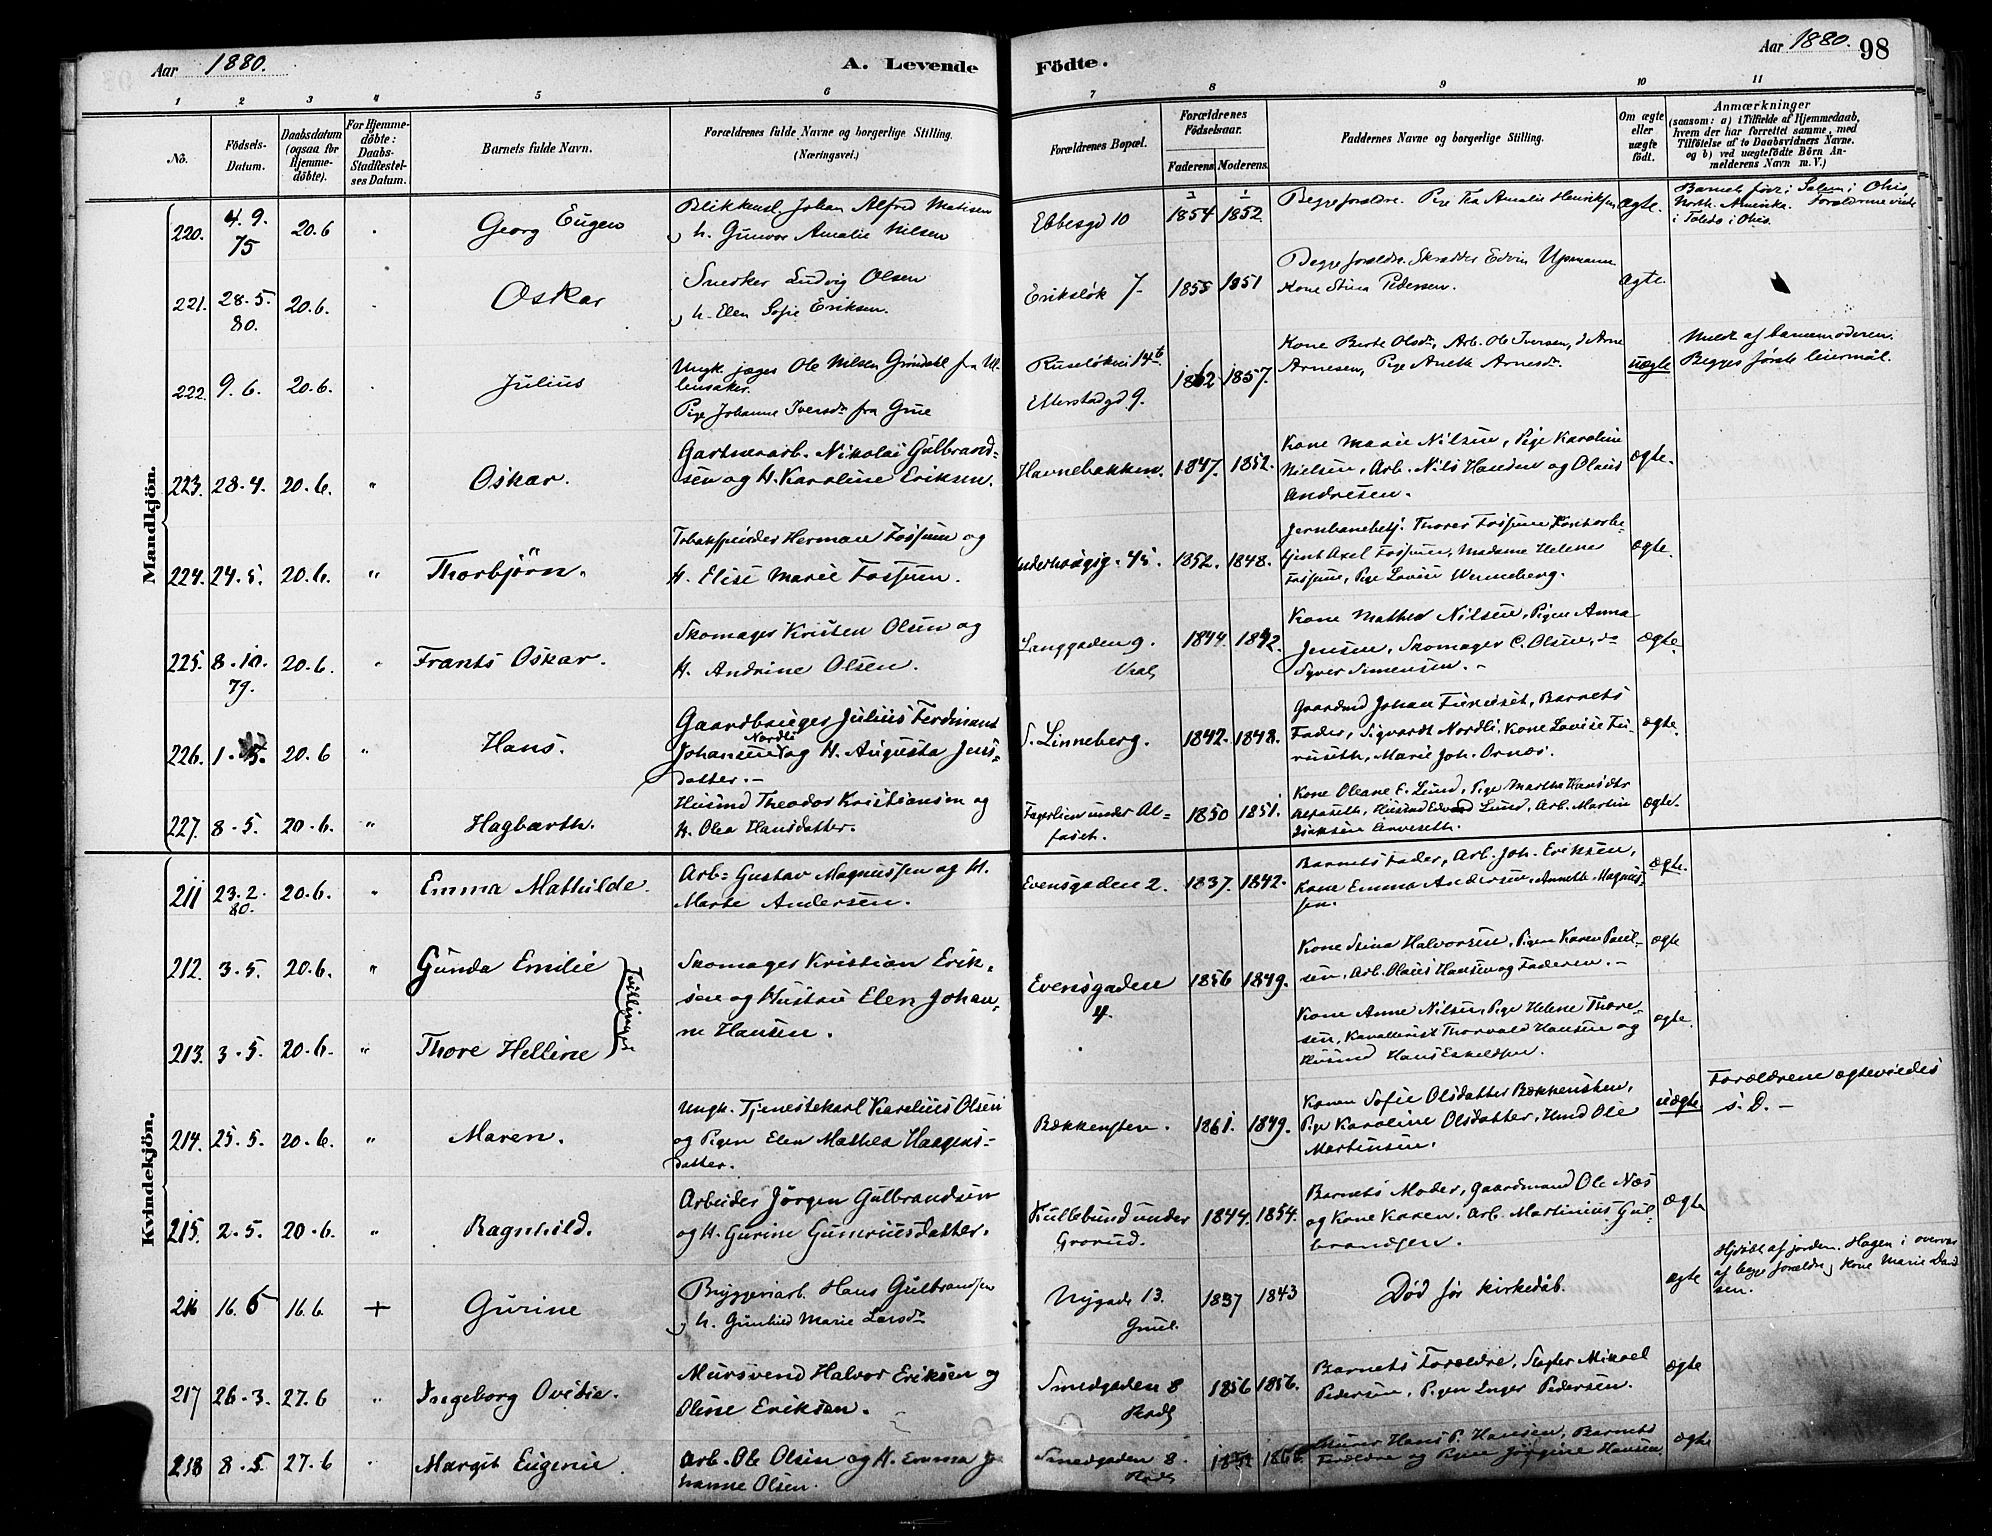 Aar 1880.
A. Levende Födte.
Aar 1880. 98
1 2 3 4 5 6 7 8 9 10 11
No.
Födsels-Datum.
Daabsdatum (ogsaa for Hjemme-döbte).
For Hjemme-döbte: Daabs-Stadfæstel-ses Datum.
Barnets fulde Navn.
Forældrenes fulde Navne og borgerlige Stilling. (Næringsvei.)
Forældrenes Bopæl.
Forældrenes Födselsaar.
Faderens. Moderens.
Faddernes Navne og borgerlige Stilling.
Om ægte eller uægte födt.
Anmærkninger
(saasom: a) i Tilfælde af Hjemmedaab, hvem der har forrettet samme, med Tilföielse af to Daabsvidners Navne. og b) ved uægtefödte Börn An-melderens Navn m. V.)
Mandkjön.
220. 4.9. 75 20.6 Georg Eugen
Blikkensl. Johan Alfred Matisen
h. Gunvor Amalie Nilsen
Ebbesgd 10 1854 1852.
Begge forældre. Pige Tea Amalie Henriksen
ægte.
Barnet født i Salem i Ohio, North Amerika. Forældrene viede i Toledo i Ohio.
221. 28.5. 80. 20.6. Oskar
Snedker Ludvig Olsen
h. Elen Sofie Eriksen.
Eriksløk 7 1855 1851
Begge forældre. Skrædder Edvin Upmann
Kone Stina Pedersen.
ægte.
222. 9.6. 20.6. Julius
Ungk. jæger Ole Nilsen Gröndahl fra Ul-
lensaker.
Pige Johanne Iversdr fra Grue
Ruseløkvei 14b
Etterstadgd 9. 1862 1857.
Kone Berte Olsdr, Arb. Ole Iversen, do Arne
Arnesen, Pige Anette Arnesdr.
uægte
Meldt af barnemoderen.
Begges første leiermål.
223. 28.4. 20.6. " Oskar.
Gartnerarb. Nikolai Gulbrand-
sen og H. Karoline Eriksen.
Havnebakken. 1847. 1852.
Kone Marie Nilsen, Pige Karoline
Nielsen, Arb. Nils Hansen og Olaus
Andresen.
ægte.
224. 24.5. 20.6. " Thorbjörn.
Tobakspinder Herman Fossum og
H. Elise Marie Fossum.
45. 1852. 1848.
Jernbanebetj. Thorer Fossum Kontorbe-
tjent Axel Fossum, Madame Helene
Fossum, Pige Lovise Wenneberg.
ægte.
225. 8.10. 79. 20.6. " Frants Oskar.
Skomager Kristen Olsen og
H. Andrine Olsen.
Langgaden 9. 1844. 1842.
Kone Mathea Nilsen, Pigen Anna
Jensen, Skomager C. Olsen, do
Syver Simensen.
ægte.
226. 1.5. 20.6 " Hans.
Gaardbruger Julius Ferdinand
Nordli
Johansen og H. Augusta Jens-
datter.
S. Linneberg. 1842. 1848.
Gaardmd Johan Furuset, Barnets
Fader, Sigvardt Nordli, Kone Lovise Fu-
ruseth, Marie Joh. Ornæs.
ægte.
227. 8.5. 20.6. " Hagbarth.
Husmd Theodor Kristiansen og
H. Olea Hansdatter.
Fagerlien under Al-
faset. 1850 1851.
Kone Oleane E. Lund, Pige Martha Hansdtr
Husmd Edvard Lund, Arb. Martin
Isaksen
ægte.
Kvindekjön.
211 23.2. 80. 20.6. " Emma Mathilde.
Arb. Gustav Magnussen og H.
Marte Andersen.
Evensgaden 2. 1837. 1842.
Barnets Fader, Arb. Joh. Eriksen,
Kone Emma Andersen, Annette Magnus-
sen.
ægte.
212. 3.5. 20.6. " Gunda Emilie
Tvillinger
Skomager Kristian Erik-
sen og Hustru Elen Johan-
ne Hansen.
Evensgaden
4. 1856 1849.
Kone Stina Halvorsen, Pigen Karen Paul-
sen, Arb. Olaus Hansen og Faderen.
ægte
213. 3.5. 20.6. " Thore Helline
Kone Anne Nilsen, Pige Helene Thore-
sen, Kavallerist Thorvald Hansen og
Husmd Hans Eskeldsen.
ægte.
214. 25.5. 20.6. " Maren.
Ungk. Tjenestekarl Karelius Olsen
og Pigen Elen Mathea Haagens-
datter.
Bækkensten. 1861. 1849.
Konen Sofie Olsdatter Bækkensten,
Pige Karoline Olsdatter, Husmd Ole
Martinsen.
uægte
Forældrene ægteviedes
s. D.
215. 2.5. 20.6. " Ragnhild.
Arbeider Jörgen Gulbrandsen
og H. Gurine Gunariusdatter.
Kullebund under
Grorud. 1844. 1854.
Barnets Moder, Gaardmand Ole Næs
og Kone Karen, Arb. Martinius Gul-
brandsen.
ægte
216 16.5 16.6 + Gurine
Bryggeriarb. Hans Gulbrandsen
h. Gunhild Marie Larsdr
Nygade 13. 1837 1843
Död för kirkedåb.
ægte
Hjdöbt af jordem. Hagen i overvær
af begge forældre, Kone Marie David
sen.
217 26.3. 27.6 " Ingeborg Ovidia.
Mursvend Halvor Eriksen og
Oline Eriksen.
Smedgaden 8 1856 1856.
Barnets Forældre, Slagter Mikael
Pedersen, Pigen Inger Pedersen.
ægte
218 8.5. 27.6 Margit Eugenie
Arb. Ole Olsen og H. Emma Jo-
hanne Olsen.
Smedgaden 8.
Murer Hans P. Hansen, Barnets
Forældre og Pigen Jörgine Hansen
ægte